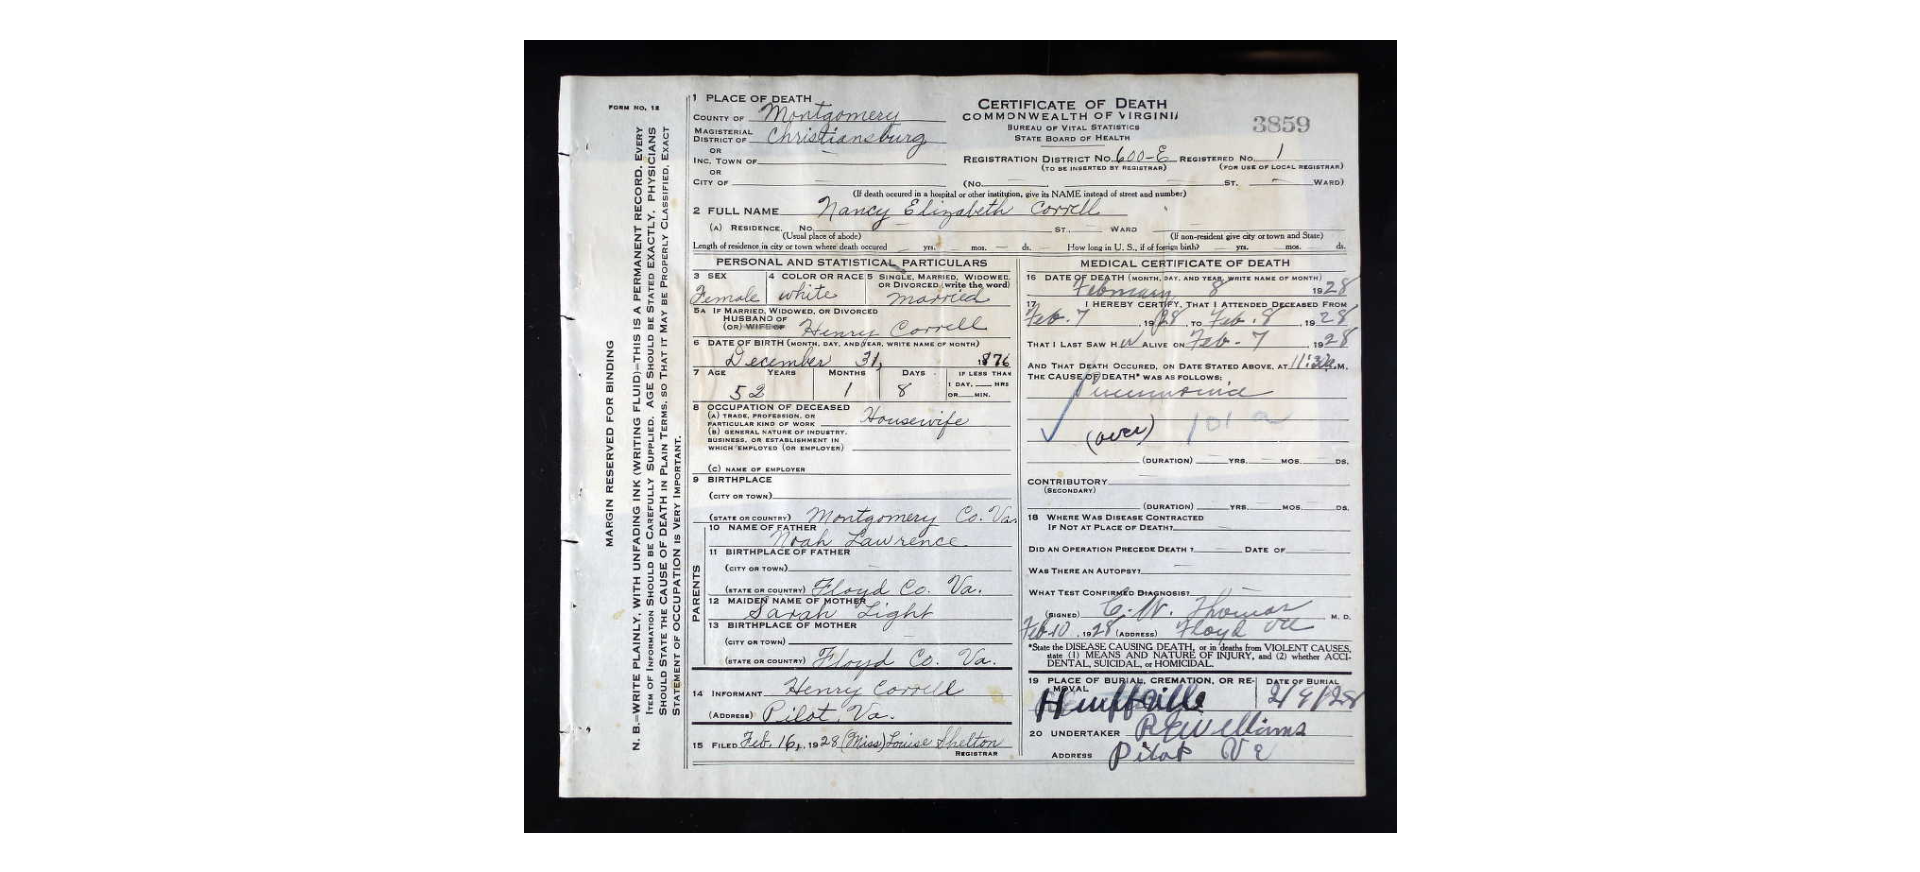 FORM NO. 12
MARGIN RESERVED FOR BINDING
N. B.—WRITE PLAINLY, WITH UNFADING INK (WRITING FLUID)—THIS IS A PERMANENT RECORD. EVERY
ITEM OF INFORMATION SHOULD BE CAREFULLY SUPPLIED. AGE SHOULD BE STATED EXACTLY. PHYSICIANS
SHOULD STATE THE CAUSE OF DEATH IN PLAIN TERMS, SO THAT IT MAY BE PROPERLY CLASSIFIED. EXACT
STATEMENT OF OCCUPATION IS VERY IMPORTANT.
1 PLACE OF DEATH
COUNTY OF Montgomery
MAGISTERIAL
DISTRICT OF Christiansburg
OR
INC. TOWN OF
OR
CITY OF
CERTIFICATE OF DEATH
COMMONWEALTH OF VIRGINIA
BUREAU OF VITAL STATISTICS
STATE BOARD OF HEALTH
3859
REGISTRATION DISTRICT NO. 600-E REGISTERED NO. 1
(TO BE INSERTED BY REGISTRAR) (FOR USE OF LOCAL REGISTRAR)
(No. ST. WARD)
(If death occured in a hospital or other institution, give its NAME instead of street and number)
2 FULL NAME Nancy Elizabeth Correll
(A) RESIDENCE. No. ST. WARD
(Usual place of abode) (If non-resident give city or town and State)
Length of residence in city or town where death occured yrs. mos. ds. How long in U. S., if of foreign birth? yrs. mos. ds.
PERSONAL AND STATISTICAL PARTICULARS
3 SEX
Female
4 COLOR OR RACE
white
5 SINGLE, MARRIED, WIDOWED
OR DIVORCED (write the word)
Married
5A IF MARRIED, WIDOWED, OR DIVORCED
HUSBAND OF
(OR) WIFE OF Henry Correll
6 DATE OF BIRTH (MONTH, DAY, AND YEAR, WRITE NAME OF MONTH)
December 31, 1876
7 AGE YEARS MONTHS DAYS IF LESS THAN
1 DAY, HRS
OR MIN.
52 1 8
8 OCCUPATION OF DECEASED
(A) TRADE, PROFESSION, OR
PARTICULAR KIND OF WORK Housewife
(B) GENERAL NATURE OF INDUSTRY,
BUSINESS, OR ESTABLISHMENT IN
WHICH EMPLOYED (OR EMPLOYER)
(C) NAME OF EMPLOYER
9 BIRTHPLACE
(CITY OR TOWN)
(STATE OR COUNTRY) Montgomery Co. Va.
PARENTS
10 NAME OF FATHER
Noah Lawrence
11 BIRTHPLACE OF FATHER
(CITY OR TOWN)
(STATE OR COUNTRY) Floyd Co. Va.
12 MAIDEN NAME OF MOTHER
Sarah Light
13 BIRTHPLACE OF MOTHER
(CITY OR TOWN)
(STATE OR COUNTRY) Floyd Co. Va.
14 INFORMANT Henry Correll
(ADDRESS) Pilot, Va.
15 FILED Feb. 16, 1928 (Miss) Louise Shelton
REGISTRAR
MEDICAL CERTIFICATE OF DEATH
16 DATE OF DEATH (MONTH, DAY, AND YEAR, WRITE NAME OF MONTH)
February 8 1928
17 I HEREBY CERTIFY, THAT I ATTENDED DECEASED FROM
Feb. 7, 1928, TO Feb. 8, 1928
THAT I LAST SAW H ALIVE ON Feb-7, 1928
AND THAT DEATH OCCURED, ON DATE STATED ABOVE, AT 11:30 a.M.
THE CAUSE OF DEATH* WAS AS FOLLOWS:
Pneumonia
(over) 101 a
(DURATION) YRS. MOS. DS.
CONTRIBUTORY
(SECONDARY)
(DURATION) YRS. MOS. DS.
18 WHERE WAS DISEASE CONTRACTED
IF NOT AT PLACE OF DEATH?
DID AN OPERATION PRECEDE DEATH? DATE OF
WAS THERE AN AUTOPSY?
WHAT TEST CONFIRMED DIAGNOSIS?
(SIGNED) C. W. Thomas M. D.
Feb 10, 1928 (ADDRESS) Floyd Va
*State the DISEASE CAUSING DEATH, or in deaths from VIOLENT CAUSES,
state (1) MEANS AND NATURE OF INJURY, and (2) whether ACCI-
DENTAL, SUICIDAL, or HOMICIDAL.
19 PLACE OF BURIAL, CREMATION, OR RE-
MOVAL
DATE OF BURIAL
Huffville 2/9/28
20 UNDERTAKER Williams
ADDRESS Pilot Va